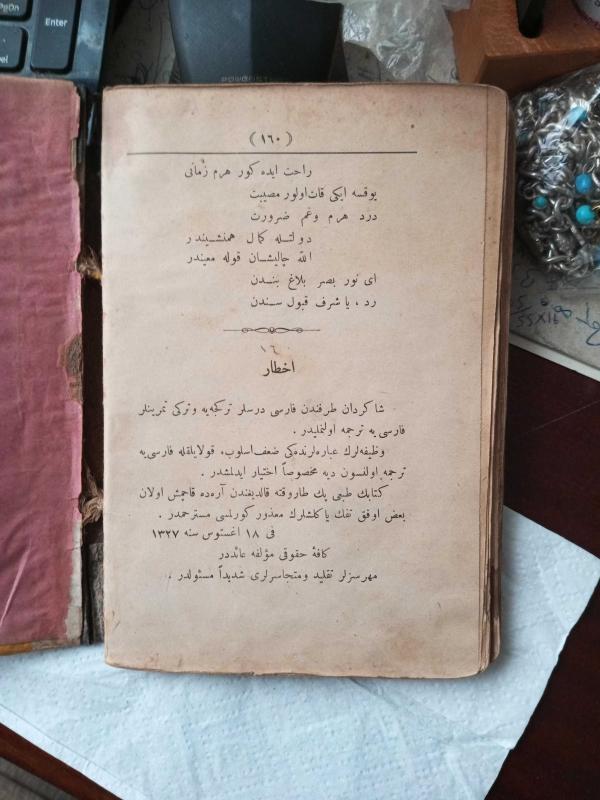 Enter
( ١٦٠ )
راحت ایده كور هرم زمانی
یوقسه ایكی قات اولور مصیبت
درد هرم و غم ضرورت
دولتله كمال همنشیندر
الله چالیشان قوله معیندر
ای نور بصر بلاغ بندن
رد ، یا شرف قبول سندن
١٦
اخطار
شاكردان طرفندن فارسی درسلر تركجه‌یه و تركی تمرینلر
فارسی‌یه ترجمه اولنملیدر .
وظیفه‌لرك عباره‌لرنده‌كی ضعف اسلوب، قولایلقله فارسی‌یه
ترجمه اولنسون دیه مخصوصاً اختیار ایدلمشدر .
كتابك طبعی پك طار وقته قالدیغندن آره‌ده قاچمش اولان
بعض اوفق تفك یاكلشلرك معذور كورلمسی مسترحمدر .
فی ١٨ اغستوس سنه ١٣٢٧
كافهٔ حقوقی مؤلفه عائددر
مهرسزلر تقلید و متجاسرلری شدیداً مسئولدر .